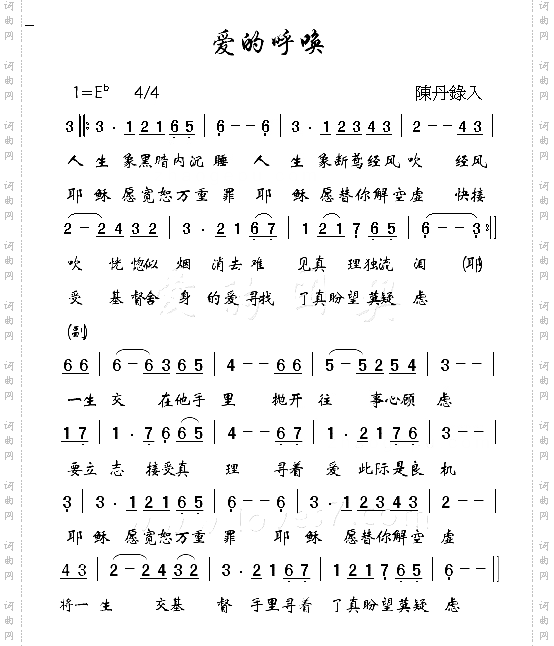 爱的呼唤
1=E♭ 4/4 陳丹錄入
3 |: 3 · 1 2 1 6 5 | 6 - - 6 | 3 · 1 2 3 4 3 | 2 - - 4 3 |
人 生 象黑暗内沉 睡 人 生 象断鸢经风 吹 经风
耶 稣 愿宽恕万重 罪 耶 稣 愿替你解空 虚 快接
2 - 2 4 3 2 | 3 · 2 1 6 7 | 1 2 1 7 6 5 | 6 - - 3 :|
吹 恍 惚似 烟 消去 难 见真 理独流 泪 (耶)
受 基 督舍 身 的爱寻找 了真盼望莫疑 虑
(副)
6 6 | 6 - 6 3 6 5 | 4 - - 6 6 | 5 - 5 2 5 4 | 3 - - |
一生 交 在他手 里 抛开 往 事心顾 虑
1 7 | 1 · 7 6 6 5 | 4 - - 6 7 | 1 · 2 1 7 6 | 3 - - |
要立 志 接受真 理 寻着 爱 此际是良 机
3 | 3 · 1 2 1 6 5 | 6 - - 6 | 3 · 1 2 3 4 3 | 2 - - |
耶 稣 愿宽恕万重 罪 耶 稣 愿替你解空 虚
4 3 | 2 - 2 4 3 2 | 3 · 2 1 6 7 | 1 2 1 7 6 5 | 6 - - |
将一 生 交基 督 手里寻着 了真盼望莫疑 虑
词曲网